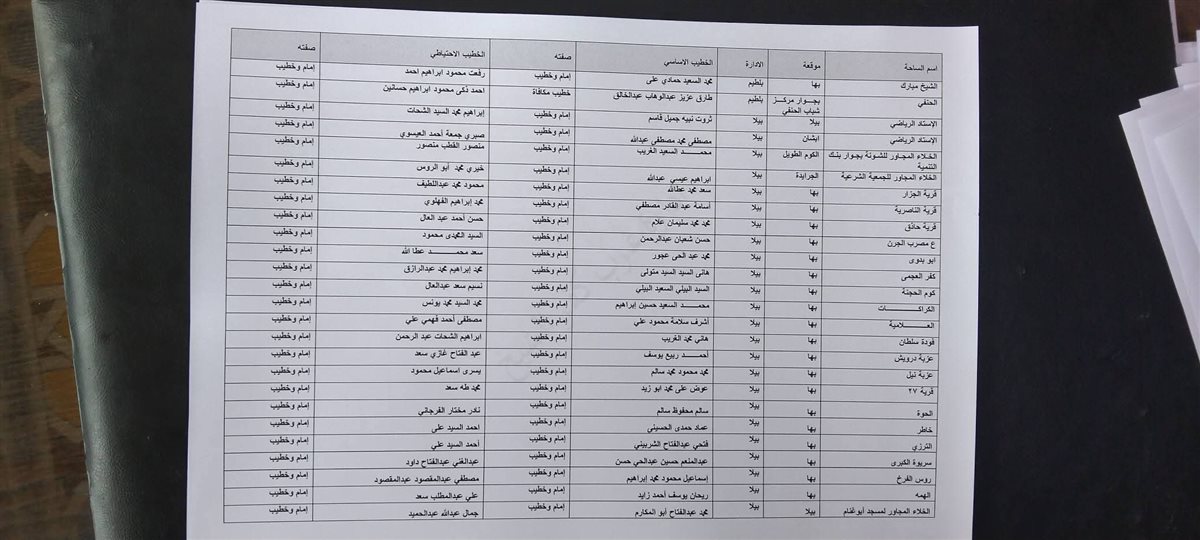 اسم الساحة موقعة الادارة الخطيب الاساسي صفته الخطيب الاحتياطي صفته
الشيخ مبارك بها بلطيم محمد السعيد حمادي على إمام وخطيب رفعت محمود ابراهيم احمد إمام وخطيب
الحنفي بجوار مركز شباب الحنفي بلطيم طارق عزيز عبدالوهاب عبدالخالق خطيب مكافاة احمد ذكى محمود ابراهيم حسانين إمام وخطيب
الإستاد الرياضي بيلا بيلا ثروت نبيه جميل قاسم إمام وخطيب إبراهيم محمد السيد الشحات إمام وخطيب
الإستاد الرياضي ابشان بيلا مصطفى محمد مصطفى عبدالله إمام وخطيب صبري جمعة أحمد العيسوي إمام وخطيب
الخلاء المجاور للشونة بجوار بنك التنمية الكوم الطويل بيلا محمد السعيد الغريب إمام وخطيب منصور القطب منصور إمام وخطيب
الخلاء المجاور للجمعية الشرعية الجرايدة بيلا ابراهيم عيسي عبدالله إمام وخطيب خيري محمد أبو الروس إمام وخطيب
قرية الجزار بها بيلا سعد محمد عطالله إمام وخطيب محمود محمد عبداللطيف إمام وخطيب
قرية الناصرية بها بيلا أسامة عبد القادر مصطفي إمام وخطيب محمد إبراهيم الفهلوي إمام وخطيب
قرية حاذق بها بيلا محمد محمد سليمان علام إمام وخطيب حسن أحمد عبد العال إمام وخطيب
ع مصرب الجرن بها بيلا حسن شعبان عبدالرحمن إمام وخطيب السيد المجدى محمود إمام وخطيب
ابو بدوى بها بيلا محمد عبد الحى عجور إمام وخطيب سعد محمد عطا الله إمام وخطيب
كفر العجمى بها بيلا هانى السيد السيد متولى إمام وخطيب محمد إبراهيم محمد عبدالرازق إمام وخطيب
كوم الحجنة بها بيلا السيد البيلي السعيد البيلي إمام وخطيب نسيم سعد عبدالعال إمام وخطيب
الكراكات بها بيلا محمد السعيد حسين إبراهيم إمام وخطيب محمد السيد محمد يونس إمام وخطيب
العلامية بها بيلا أشرف سلامة محمود علي إمام وخطيب مصطفى أحمد فهمي علي إمام وخطيب
فودة سلطان بها بيلا هاني محمد الغريب إمام وخطيب ابراهيم الشحات عبد الرحمن إمام وخطيب
عزبة درويش بها بيلا أحمد ربيع يوسف إمام وخطيب عبد الفتاح غازي سعد إمام وخطيب
عزبة نيل بها بيلا محمد محمود محمد سالم إمام وخطيب يسرى اسماعيل محمود إمام وخطيب
قرية ٢٧ بها بيلا عوض على محمد ابو زيد إمام وخطيب محمد طه سعد إمام وخطيب
الحوة بها بيلا سالم محفوظ سالم إمام وخطيب نادر مختار الفرجاني إمام وخطيب
خاطر بها بيلا عماد حمدى الحسينى إمام وخطيب احمد السيد على إمام وخطيب
الترزي بها بيلا فتحي عبدالفتاح الشربيني إمام وخطيب أحمد السيد علي إمام وخطيب
سريوة الكبرى بها بيلا عبدالمنعم حسين عبدالحي حسن إمام وخطيب عبدالغني عبدالفتاح داود إمام وخطيب
روس الفرخ بها بيلا إسماعيل محمود محمد إبراهيم إمام وخطيب مصطفي عبدالمقصود عبدالمقصود إمام وخطيب
الهمه بها بيلا ريحان يوسف أحمد زايد إمام وخطيب علي عبدالمطلب سعد إمام وخطيب
الخلاء المجاور لمسجد أبوغنام بيلا بيلا محمد عبدالفتاح أبو المكارم إمام وخطيب جمال عبدالله عبدالحميد إمام وخطيب